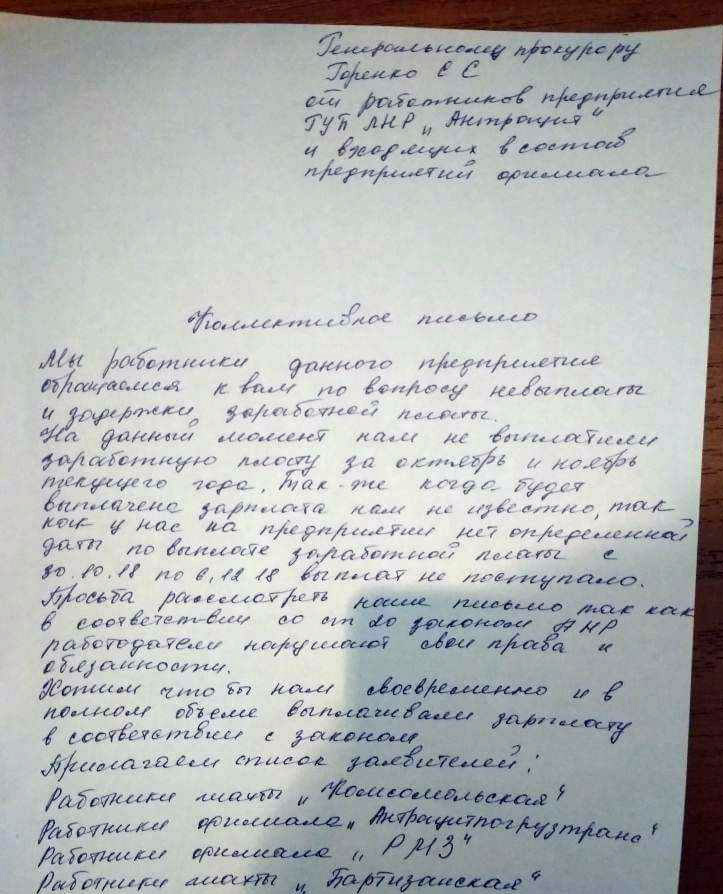 Генеральному прокурору
Горенко С С
от работников предприятия
ГУП ЛНР „Антрацит“
и входящих в состав
предприятий филиала
Коллективное письмо
Мы работники данного предприятия
обращаемся к вам по вопросу невыплаты
и задержки заработной платы.
На данный момент нам не выплатили
заработную плату за октябрь и ноябрь
текущего года. Так-же когда будет
выплачена зарплата нам не известно, так
как у нас на предприятии нет определенной
даты по выплате заработной платы с
30.10.18 по 6.12.18 выплат не поступало.
Просьба рассмотреть наше письмо так как
в соответствии со ст 20 законом ЛНР
работодатели нарушают свои права и
обязанности.
Хотим что бы нам своевременно и в
полном объеме выплачивали зарплату
в соответствии с законом
Прилагаем список заявителей:
Работники шахты „Комсомольская“
Работники филиала „Антрацитпогрузтранс“
Работники филиала „РМЗ“
Работники шахты „Партизанская“